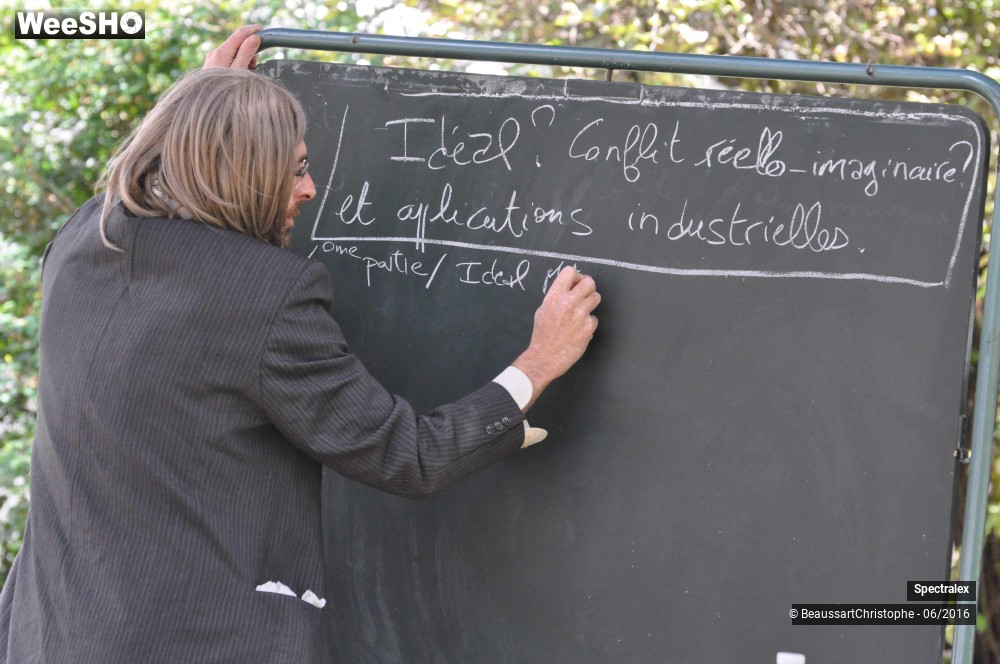 WeeSHO
Idéal? Conflit réello-imaginaire?
et applications industrielles.
ome partie / Idéal
Spectralex
© BeaussartChristophe - 06/2016